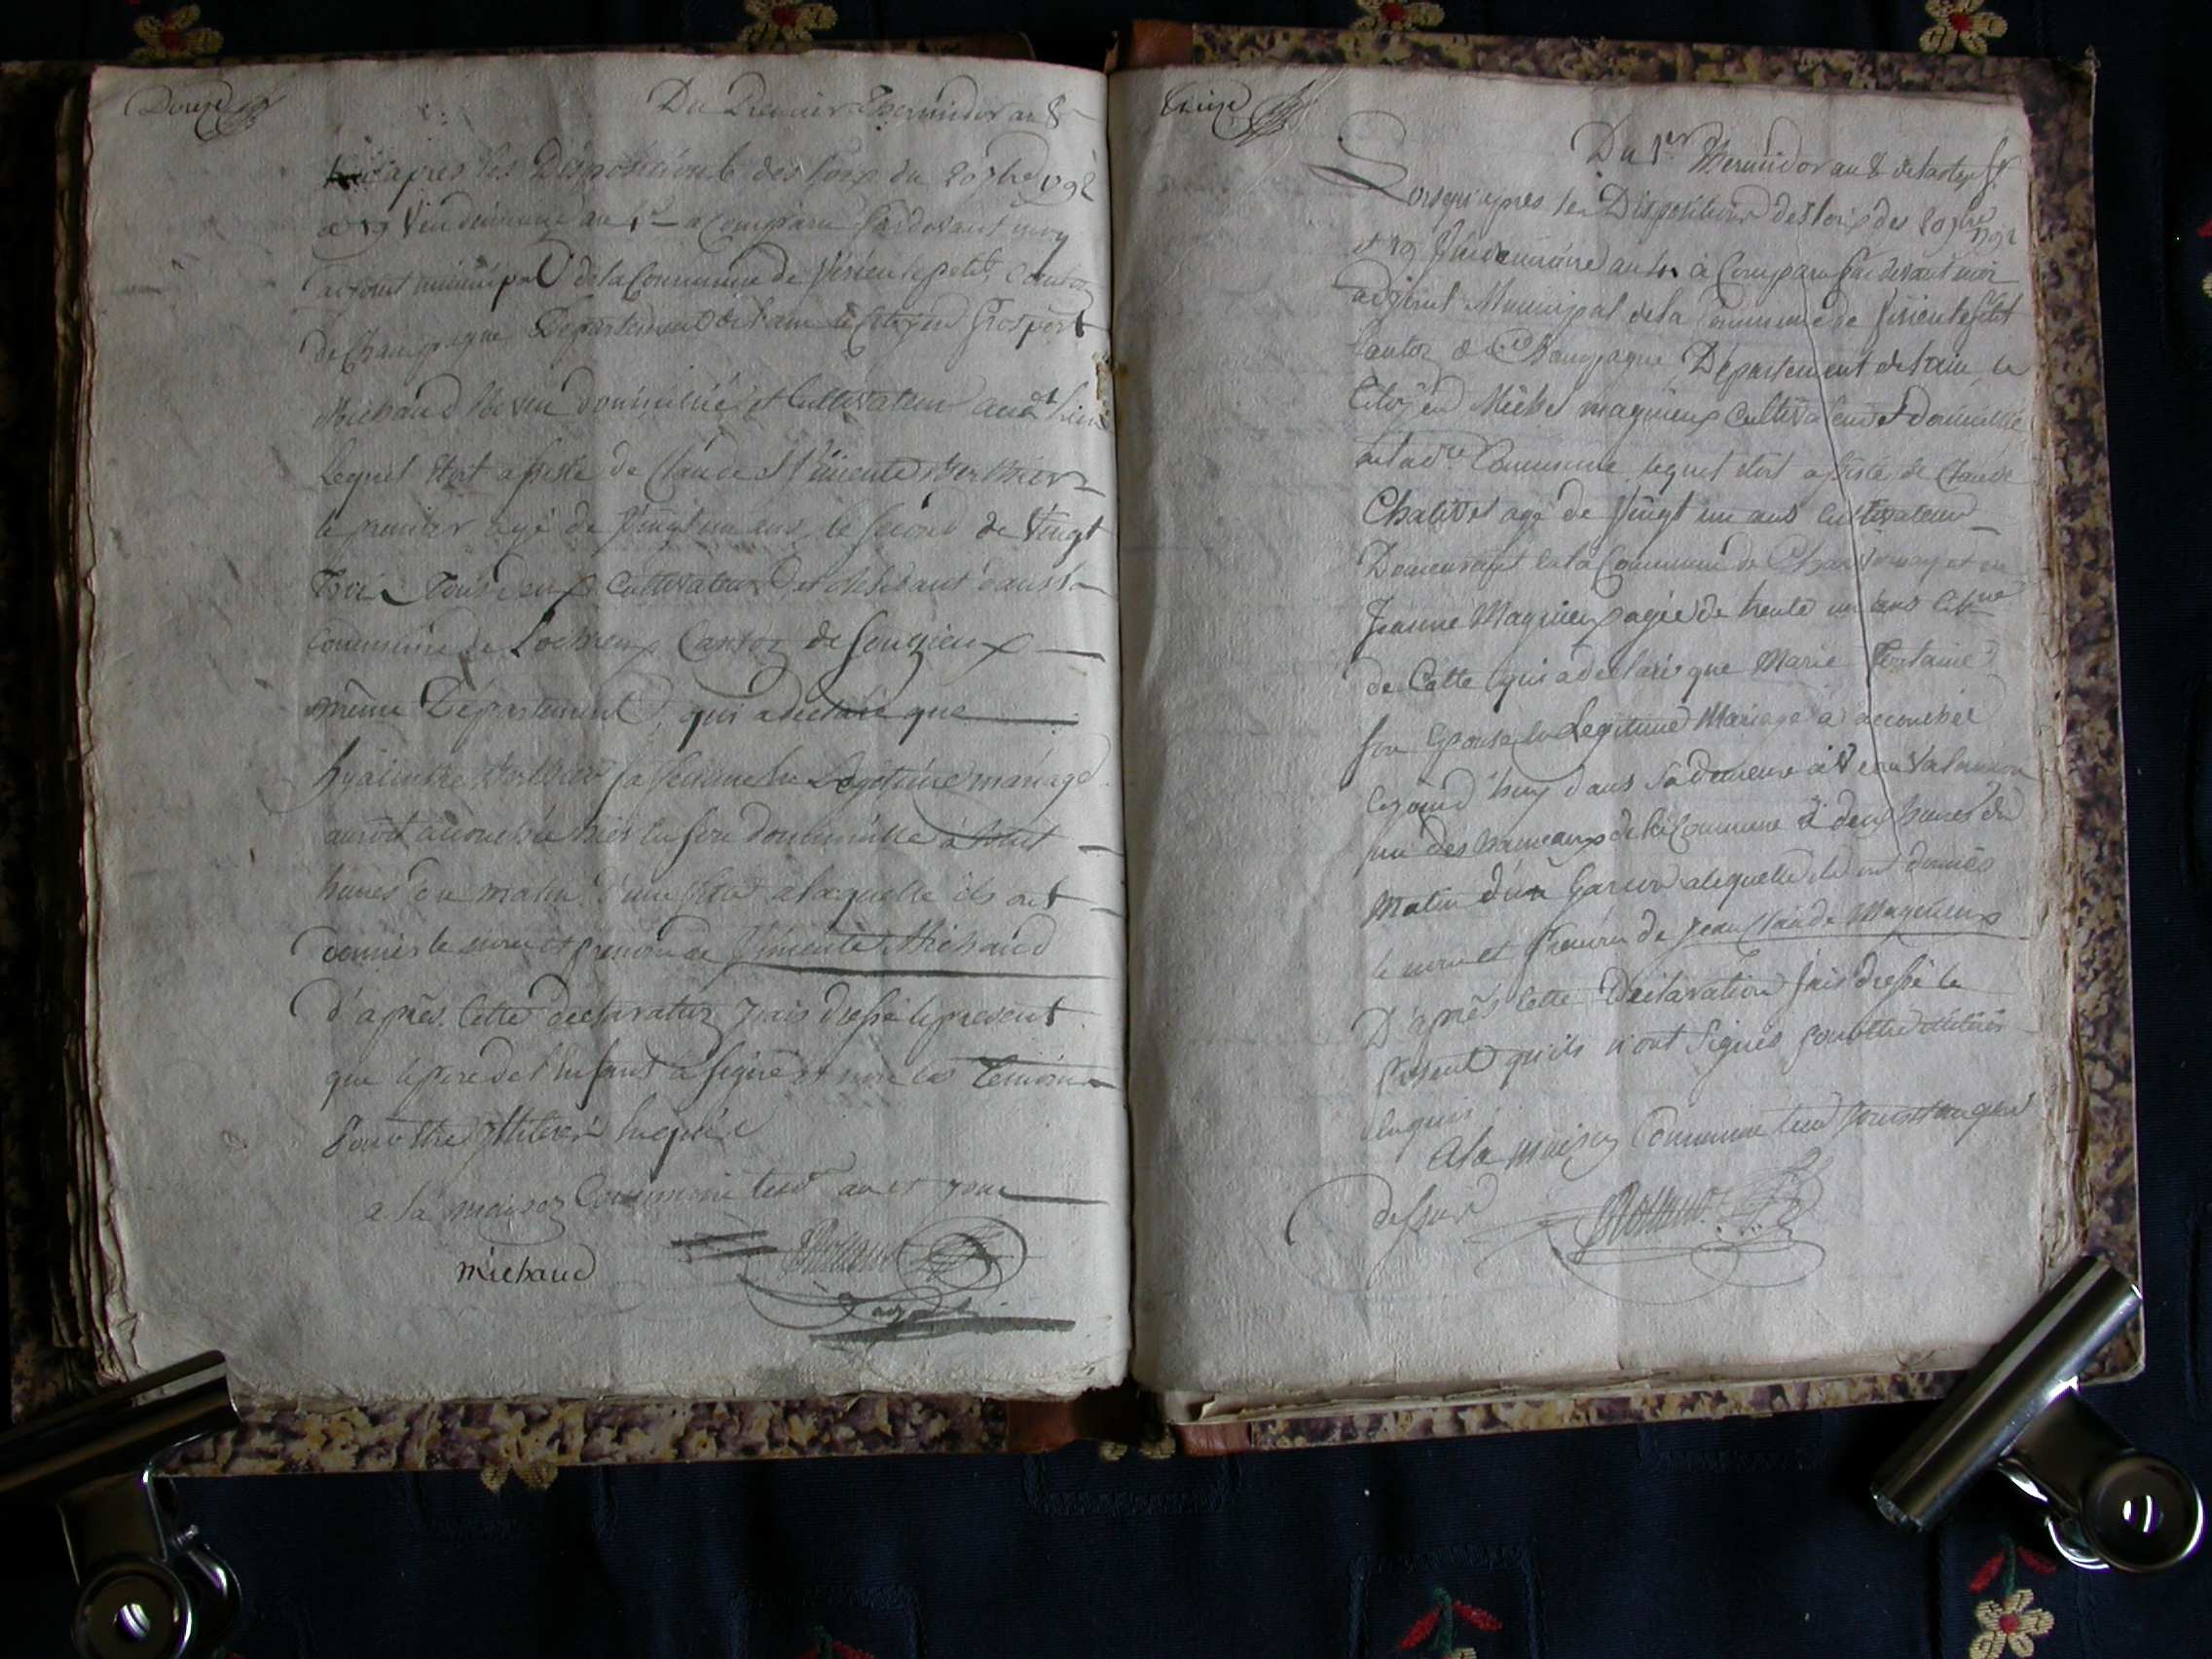 Douze
Du Premier Thermidor an 8
d'après les Dispositions des Loix du 20 7bre 1792
et 19 Vendemiaire an 4 a Comparu pardevant moy
adjoint municipal de la Commune de Virieu le petit, Canton
de Champagne Département de l'ain le Citoyen Prospert
Michaud domicilié et Cultivateur
Lequel etant assisté de Claude et Vincente Berthier
le premier agé de Vingt un ans, le second de Vingt
Trois Tous deux Cultivateurs et Residant dans la
Commune de Lochieux Canton de Songieux
même Département, qui a déclaré que
hyacinthe Berthier sa femme en Légitime mariage
auroit accouchée hier en son domicille à huit
heures du matin d'une fille a laquelle ils ont
donnés le nom et prenom de Vincente Michaud
d'après Cette declaration j'ais dressé le present
que le pere de l'Enfant a signé et non les Temoins
Pour être illiteré Enquis
a la maison Commune lesd an et jour
michaud
Rolland
adjoint
Treize
Du 1er Thermidor an 8 de la rep. f.
Lorsqu'apres les Dispositions des loix des 20 7bre 1792
et 19 Vendemiaire an 4 à Comparu pardevant moi
adjoint Municipal de la Commune de Virieu le petit
Canton de Champagne Département de l'ain, le
Citoyen Michel magnieux Cultivateur et domicillié
en lad.te Commune lequel etant assisté de Claude
Chalivet agé de Vingt un ans Cultivateur
Demeurant en la Commune de et de
Jeanne Magnieux agée de trente un ans
de Cette qui a declaré que Marie Fontaine
son Epouse en Legitime Mariage a accouchée
Cejourd'huy dans sa demeure à
un des hameaux de la Commune à deux heures du
Matin d'un Garcon alequelle ils ont donnés
le nom et Prenom de Jean Claude Magnieux
D'après Cette Declaration j'ais dressé le
Present qu'ils n'ont signés pour être illiterés
Enquis
A la maison Commune lesd jour et an que
dessus
Rolland